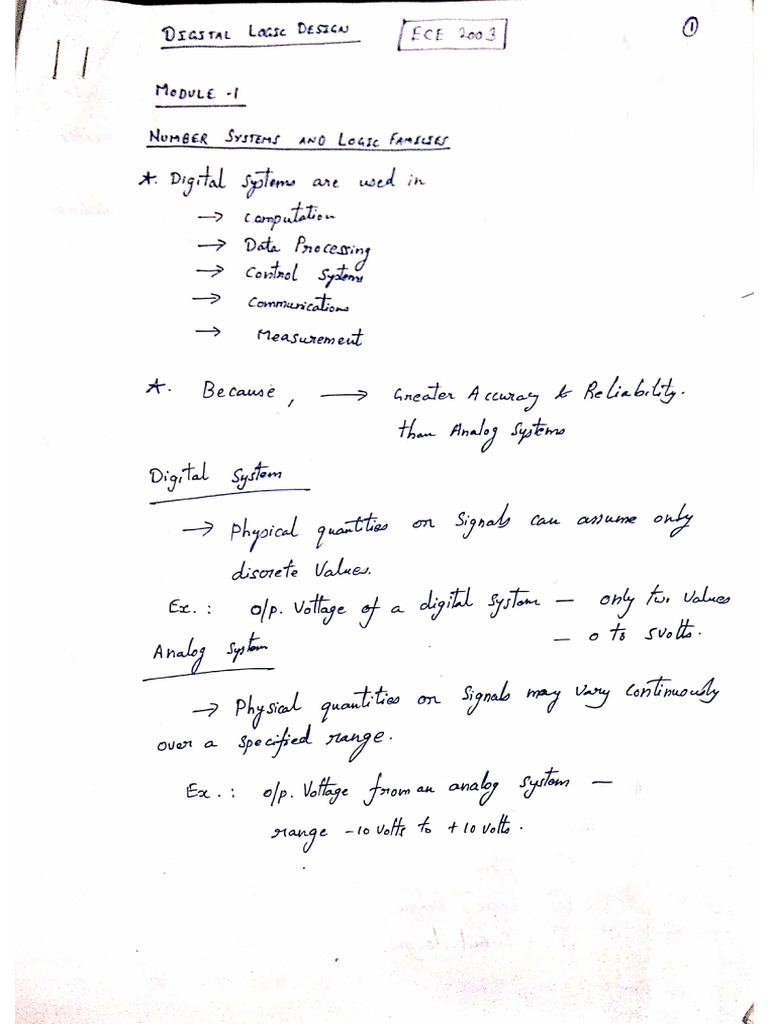 DIGITAL LOGIC DESIGN ECE 2003 1
MODULE -1
NUMBER SYSTEMS AND LOGIC FAMILIES
*. Digital Systems are used in
→ Computation
→ Data Processing
→ Control Systems
→ Communications
→ Measurement
*. Because, → Greater Accuracy & Reliability.
than Analog Systems
Digital System
→ Physical quantities or Signals can assume only
discrete Values.
Ex.: o/p. Voltage of a digital system – only two values
– 0 to 5volts.
Analog System
→ Physical quantities or Signals may vary continuously
over a specified range.
Ex.: o/p. Voltage from an analog system –
range -10 volts to +10 volts.